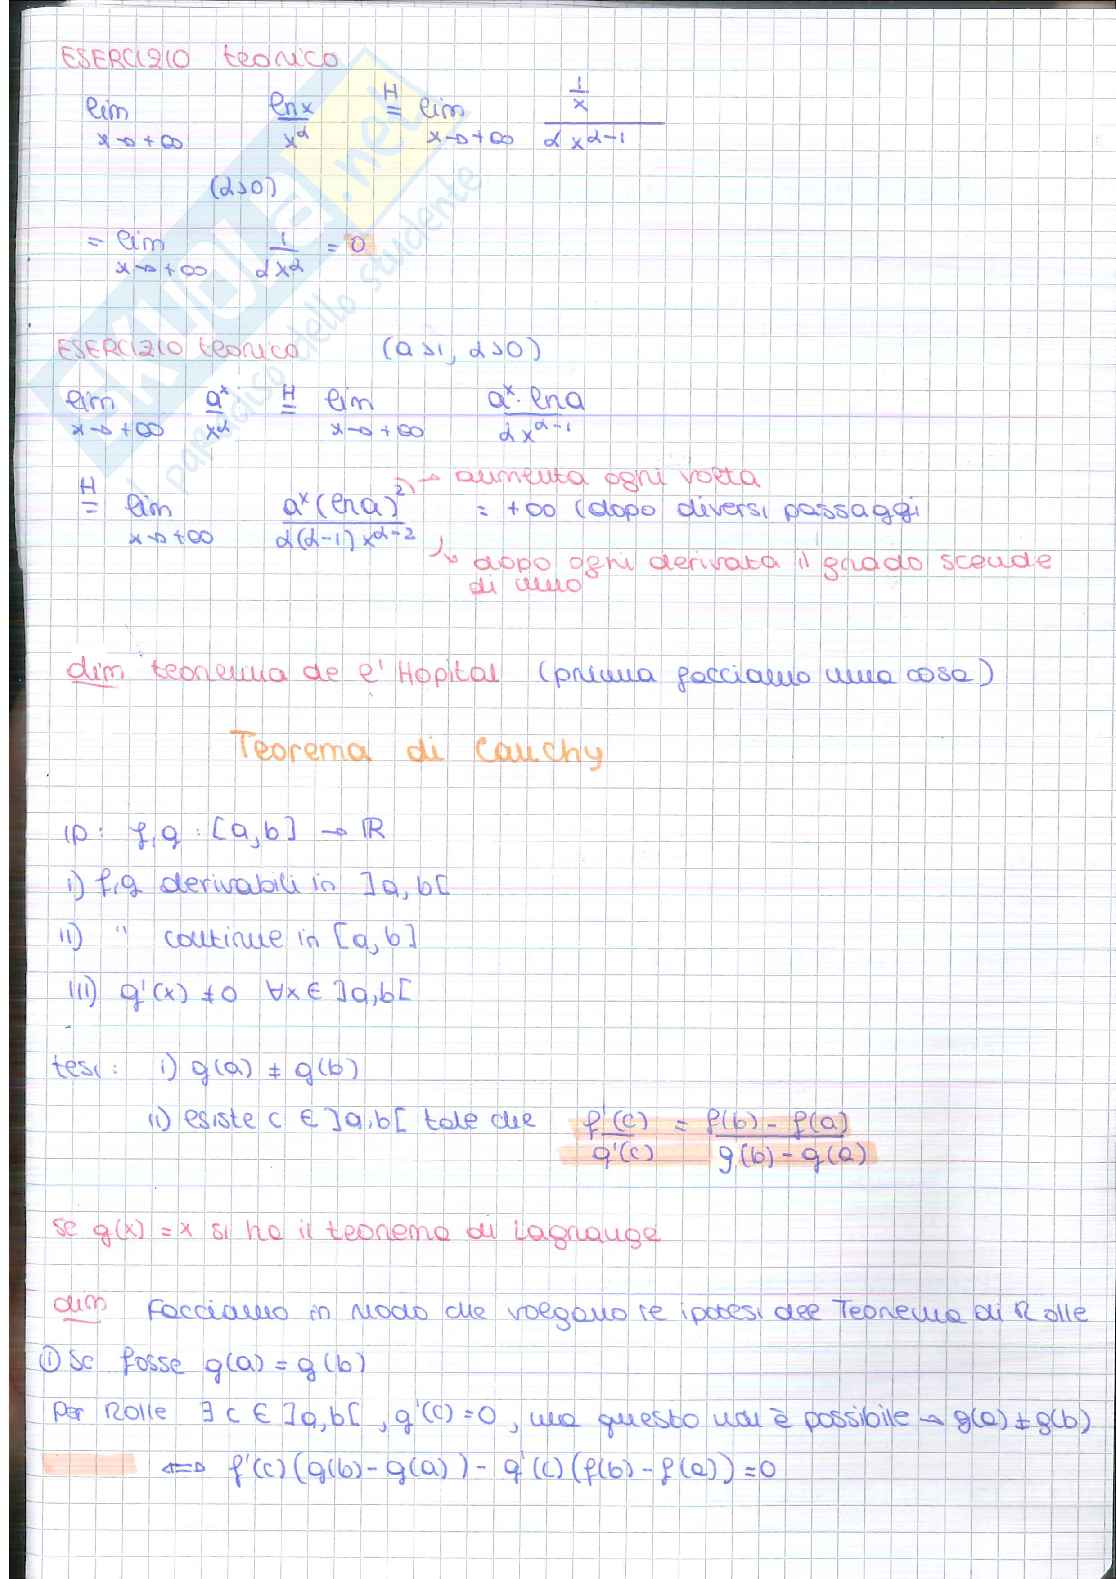 ESERCIZIO teorico
lim x→+∞ ln x / x^α H= lim x→+∞ (1/x) / (α x^(α-1))
(α>0)
= lim x→+∞ 1 / (α x^α) = 0
ESERCIZIO teorico (a>1, α>0)
lim x→+∞ a^x / x^α H= lim x→+∞ (a^x · ln a) / (α x^(α-1))
→ aumenta ogni volta
H= lim x→+∞ (a^x (ln a)^2) / (α(α-1) x^(α-2)) = +∞ (dopo diversi passaggi
↘ dopo ogni derivata il grado scende
di uno
dim teorema de l'Hopital (prima facciamo una cosa)
Teorema di Cauchy
ip: f,g : [a,b] → ℝ
i) f,g derivabili in ]a,b[
ii) " continue in [a,b]
iii) g'(x) ≠0 ∀x∈ ]a,b[
tesi: i) g(a) ≠ g(b)
ii) esiste c ∈ ]a,b[ tale che f'(c) / g'(c) = (f(b) - f(a)) / (g(b) - g(a))
se g(x) = x si ha il teorema di Lagrange
dim Facciamo in modo che valgano le ipotesi del Teorema di Rolle
① Se fosse g(a) = g(b)
per Rolle ∃ c ∈ ]a,b[ , g'(c)=0, ma questo non è possibile → g(a) ≠ g(b)
⟺ f'(c)(g(b) - g(a)) - g'(c)(f(b) - f(a)) = 0
skuola.net
il paradiso dello studente